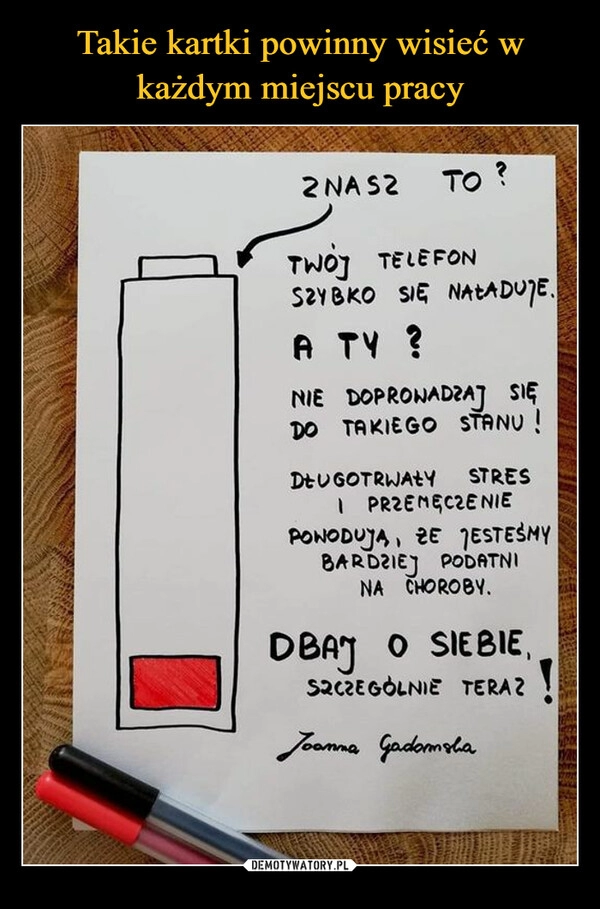 Takie kartki powinny wisieć w
każdym miejscu pracy
ZNASZ TO ?
TWÓJ TELEFON
SZYBKO SIĘ NAŁADUJE.
A TY ?
NIE DOPROWADZAJ SIĘ
DO TAKIEGO STANU !
DŁUGOTRWAŁY STRES
I PRZEMĘCZENIE
POWODUJĄ, ŻE JESTEŚMY
BARDZIEJ PODATNI
NA CHOROBY.
DBAJ O SIEBIE,
SZCZEGÓLNIE TERAZ !
Joanna Gadomska
DEMOTYWATORY.PL